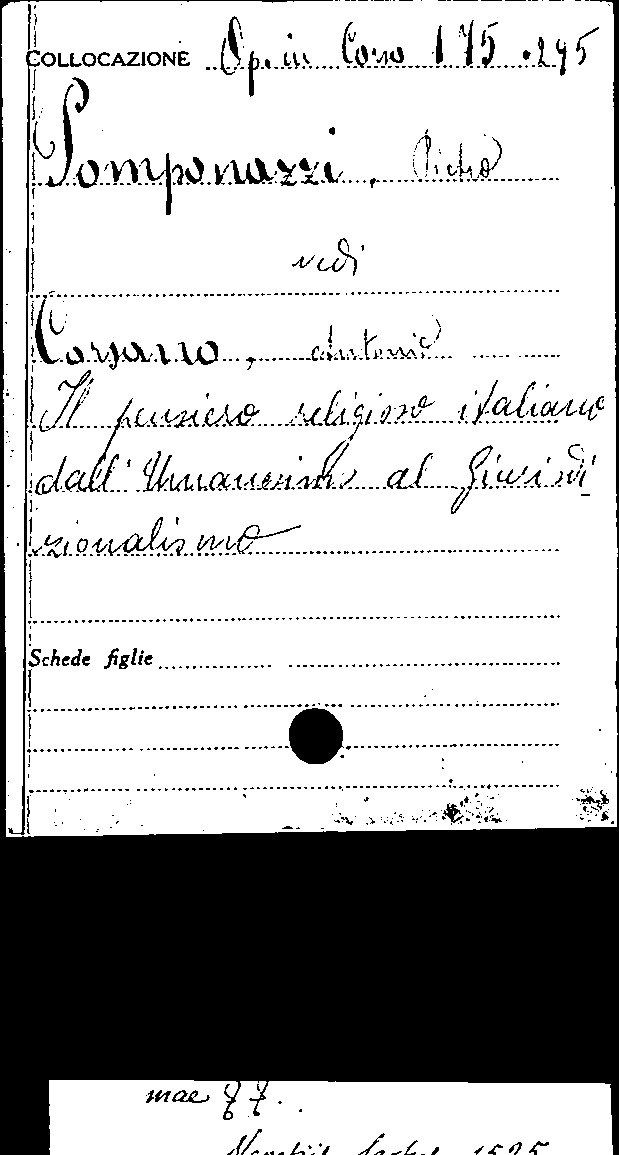 COLLOCAZIONE Op. in Corso 175.295
Pomponazzi, Pietro
vedi
Corsano, Antonio
Il pensiero religioso italiano
dall'Umanesimo al Giurisdi
zionalismo
Schede figlie
mae
1525